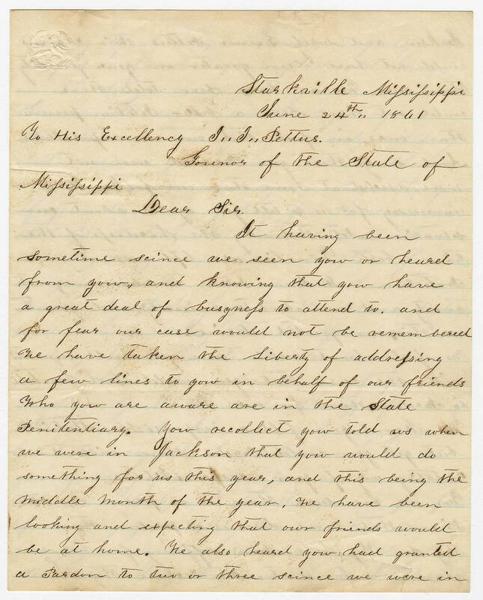 Starkville Mississippi
June 24th, 1861
To His Excellency J. J. Pettus.
Govnor of the State of
Mississippi
Dear Sir.
It having been
sometime scince we seen yow or heard
from yow, and knowing that yow have
a great deal of busgness to attend to. and
for fear our case would not be remembered
We have taken the Liberty of addressing
a few lines to yow in behalf of our friends
Who yow are aware are in the State
Penitentiary. Yow recollect yow told us when
we were in Jackson that yow would do
something for us this year, and this being the
Middle Month of the year, We have been
looking and expecting that our friends would
be at home. We also heard yow had granted
a Pardon to two or three scince we were in